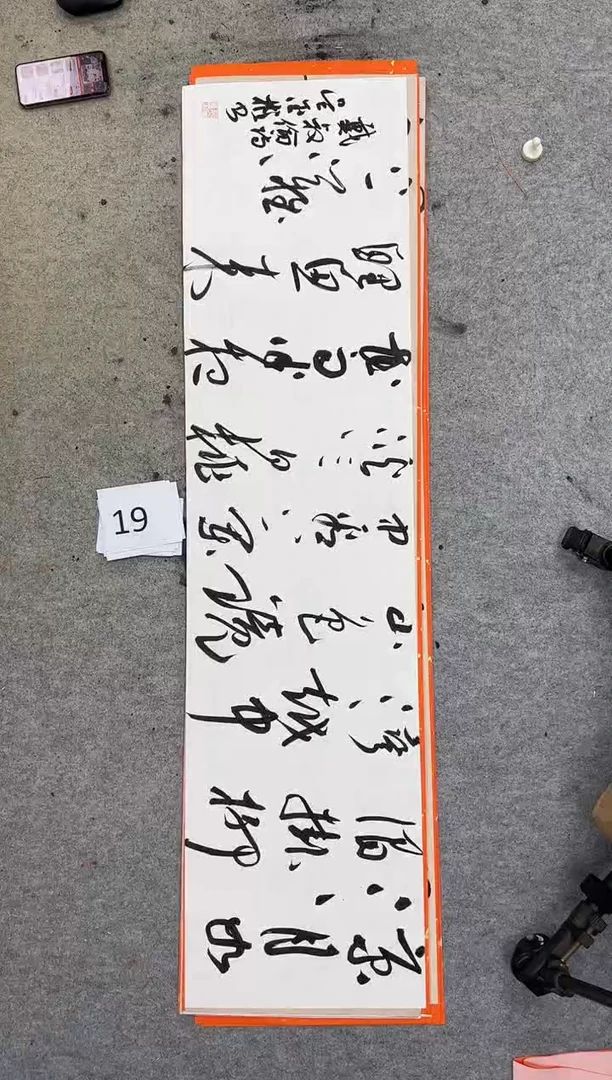 涼月如
眉掛柳
灣越中
山色鏡
中看蘭
溪三日桃
花雨半夜
鯉魚來
上灘
戴叔倫詩
19